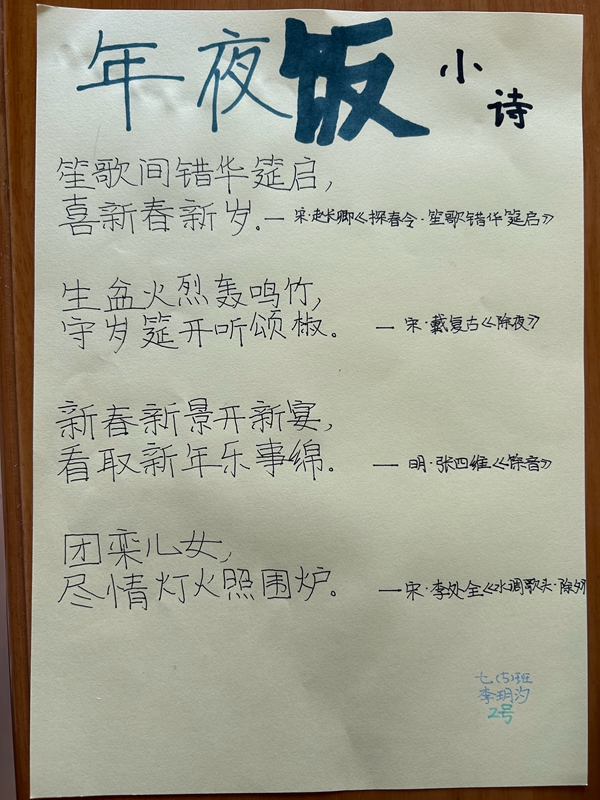 年夜饭小诗
笙歌间错华筵启，
喜新春新岁。— 宋·赵长卿《探春令·笙歌错华筵启》
生盆火烈轰鸣竹，
守岁筵开听颂椒。 — 宋·戴复古《除夜》
新春新景开新宴，
看取新年乐事绵。 — 明·张四维《馀音》
团栾儿女，
尽情灯火照围炉。 — 宋·李处全《水调歌头·除夕
七(5)班
李玥汐
2号